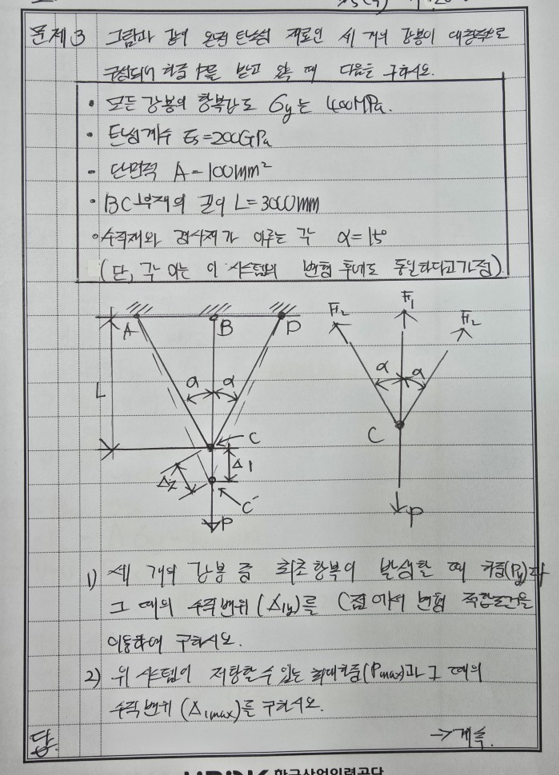 문제3 그림과 같이 완전 탄소성 재료인 세 개의 강봉이 대칭적으로
구성되어 하중 P를 받고 있을 때 다음을 구하시오.
• 모든 강봉의 항복강도 σy는 400MPa.
• 탄성계수 Es=200GPa
- 단면적 A-100mm²
• BC부재의 길이 L=3000mm
• 수직재와 경사재가 이루는 각 α=15°
(단, 각 α는 이 시스템의 변형 후에도 동일하다고 가정)
A B D
L α α
C
Δ2 Δ1
C'
P
F2 F1 F2
α α
C
P
1) 세 개의 강봉 중 최초 항복이 발생할 때 하중(Py)과
그 때의 수직변위 (Δ1y)를 C점에서 변형 적합조건을
이용하여 구하시오.
2) 위 시스템이 저항할 수 있는 최대하중(Pmax)과 그 때의
수직변위 (Δ1max)를 구하시오.
답. → 계속.
한국산업인력공단